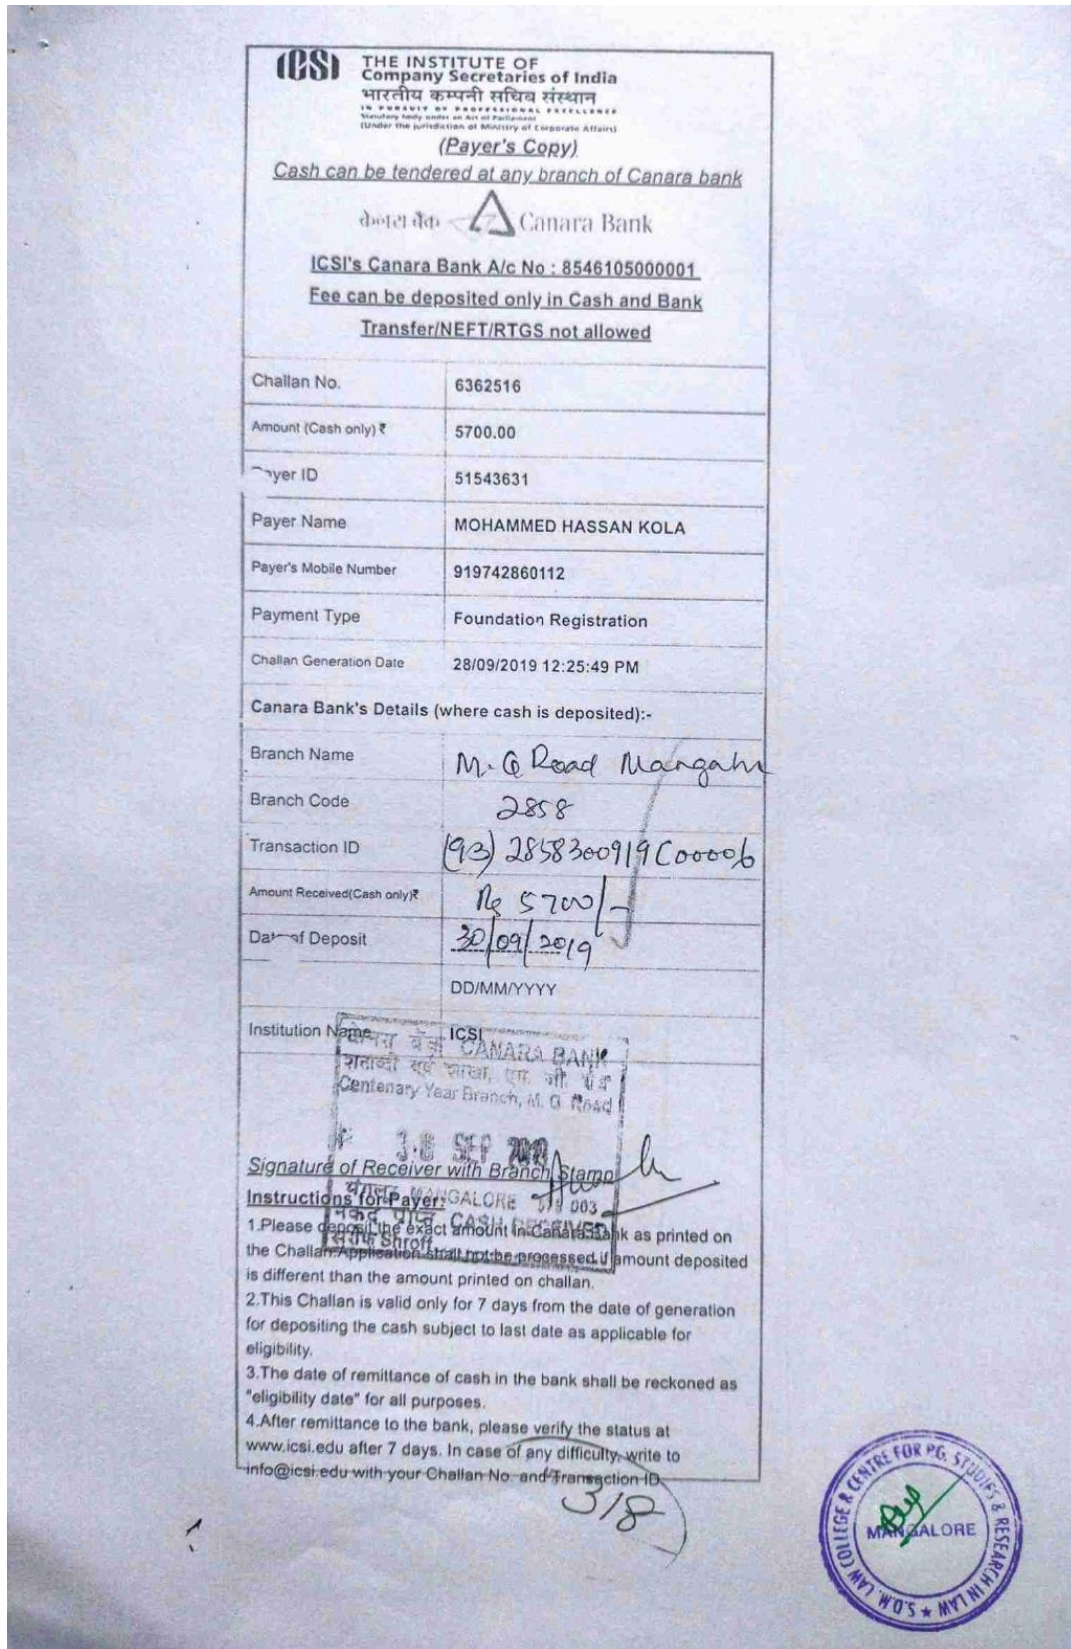 ICSI THE INSTITUTE OF
Company Secretaries of India
भारतीय कम्पनी सचिव संस्थान
IN PURSUIT OF PROFESSIONAL EXCELLENCE
Statutory body under an Act of Parliament
(Under the jurisdiction of Ministry of Corporate Affairs)
(Payer's Copy)
Cash can be tendered at any branch of Canara bank
केनरा बैंक Canara Bank
ICSI's Canara Bank A/c No : 8546105000001
Fee can be deposited only in Cash and Bank
Transfer/NEFT/RTGS not allowed
Challan No. 6362516
Amount (Cash only) ₹ 5700.00
Payer ID 51543631
Payer Name MOHAMMED HASSAN KOLA
Payer's Mobile Number 919742860112
Payment Type Foundation Registration
Challan Generation Date 28/09/2019 12:25:49 PM
Canara Bank's Details (where cash is deposited):-
Branch Name M.G Road
Branch Code 2858
Transaction ID (93) 2858300919C00006
Amount Received(Cash only)₹ Rs 5700/-
Date of Deposit 30/09/2019
DD/MM/YYYY
Institution Name ICSI
केनरा बैंक CANARA BANK
शताब्दी वर्ष शाखा, एम. जी. रोड
Centenary Year Branch, M. G. Road
30 SEP 2019
Signature of Receiver with Branch Stamp
MANGALORE 003
Instructions for Payer:
नकद प्राप्त CASH RECEIVED
सर्राफ Shroff
1.Please deposit the exact amount in Canara Bank as printed on
the Challan.Application shall not be processed if amount deposited
is different than the amount printed on challan.
2.This Challan is valid only for 7 days from the date of generation
for depositing the cash subject to last date as applicable for
eligibility.
3.The date of remittance of cash in the bank shall be reckoned as
"eligibility date" for all purposes.
4.After remittance to the bank, please verify the status at
www.icsi.edu after 7 days. In case of any difficulty, write to
info@icsi.edu with your Challan No. and Transaction ID.
318
S.D.M. LAW COLLEGE & CENTRE FOR P.G. STUDIES & RESEARCH IN LAW
MANGALORE